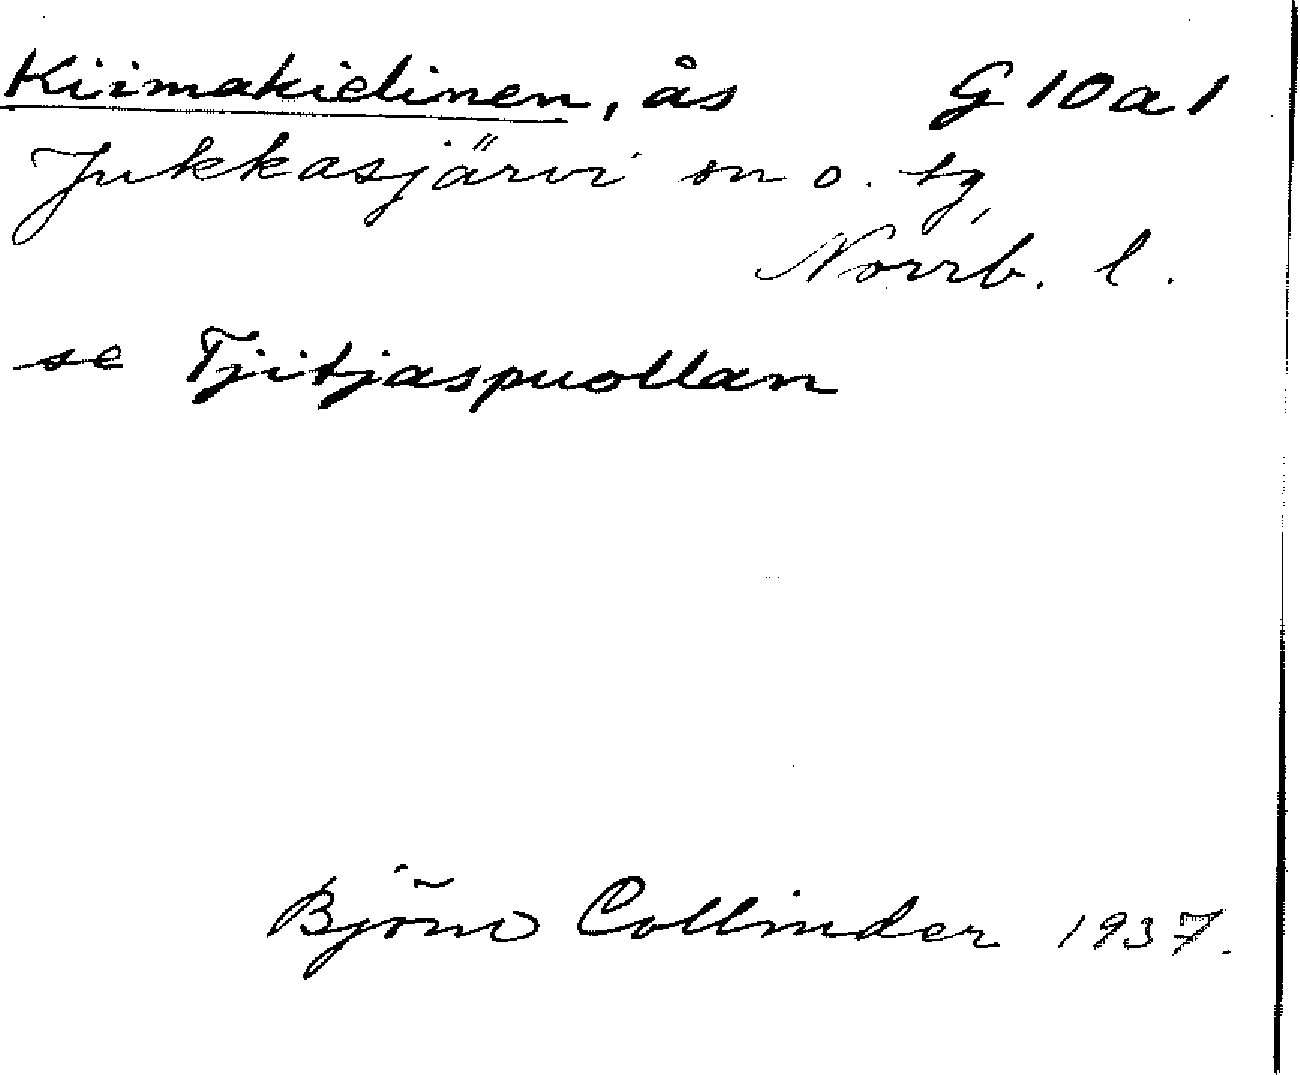 Kiimakielinen, ås G 10 a 1
Jukkasjärvi sn o. tg,
Norrb. l.
se Tjitjaspuollan
Björn Collinder 1937.